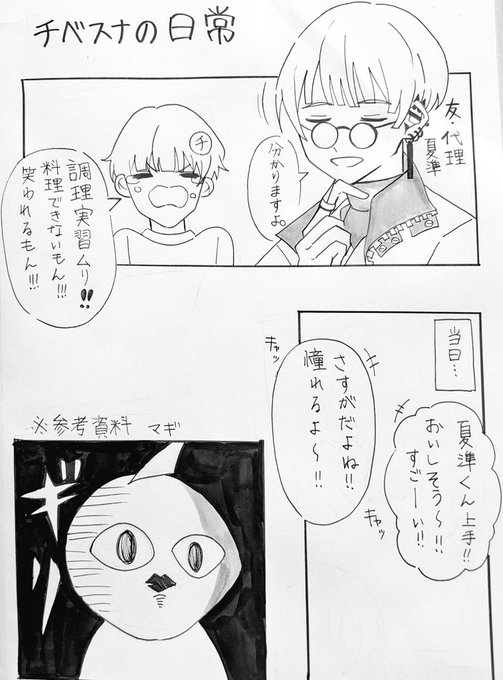 チベスナの日常
友・代理
夏準
分かりますよ。
チ
調理実習ムリ!!
料理できないもん!!!
笑われるもん!!!
当日…
夏準くん上手!!
おいしそう〜!!
すごーい!!
キャッ
さすがだよね!!
憧れるよ〜!!
キャッ
※参考資料 マギ